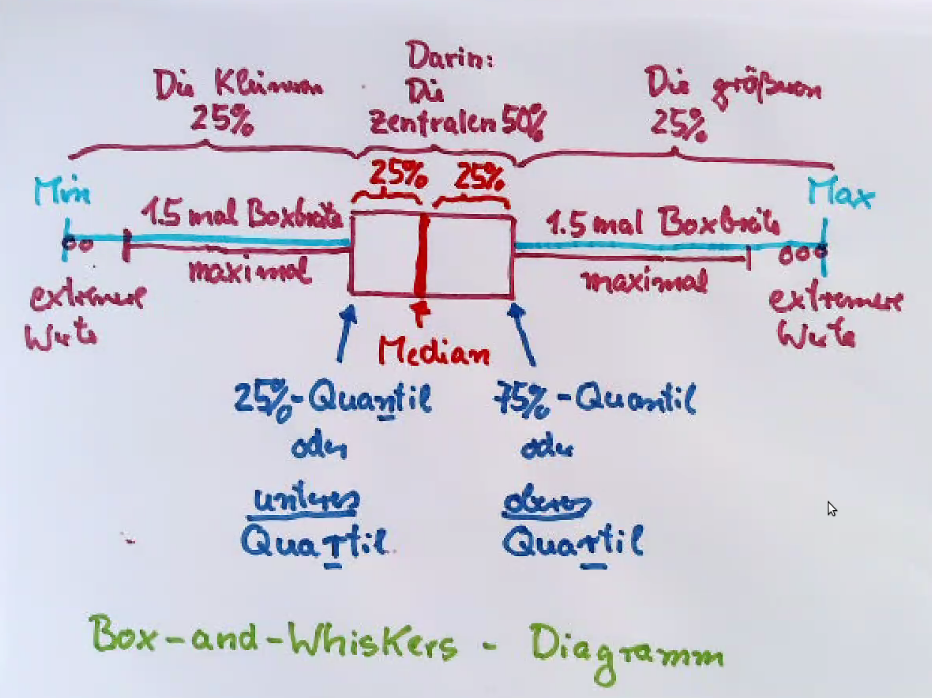 Darin:
Die Kleineren
25%
Die
zentralen 50%
Die größeren
25%
25% 25%
Min
Max
1.5 mal Boxbreite
maximal
1.5 mal Boxbreite
maximal
extremere
Werte
extremere
Werte
Median
25%-Quantil
oder
unteres
Quartil
75%-Quantil
oder
oberes
Quartil
Box-and-Whiskers - Diagramm